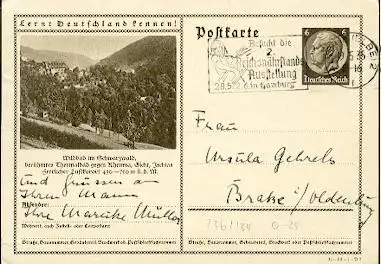 Lernt Deutschland kennen!
Postkarte
Besucht die
2.
Reichsnährstands
Ausstellung
28.5.-2.6. in Hamburg
6 6
Deutsches Reich
Wildbad im Schwarzwald,
berühmtes Thermalbad gegen Rheuma, Gicht, Ischias
Herrlicher Luftkurort 430–750 m ü. d. M.
und grüssen a
Ihren Mann
Absender:
Ihre Mareike Müller
Wohnort, auch Zustell- oder Leitpostamt
Straße, Hausnummer, Gebäudeteil, Stockwerk od. Postschließfachnummer
Frau
Ursula Gehrels
Brake i/Oldenburg
Straße, Hausnummer, Gebäudeteil, Stockwerk oder Postschließfachnummer